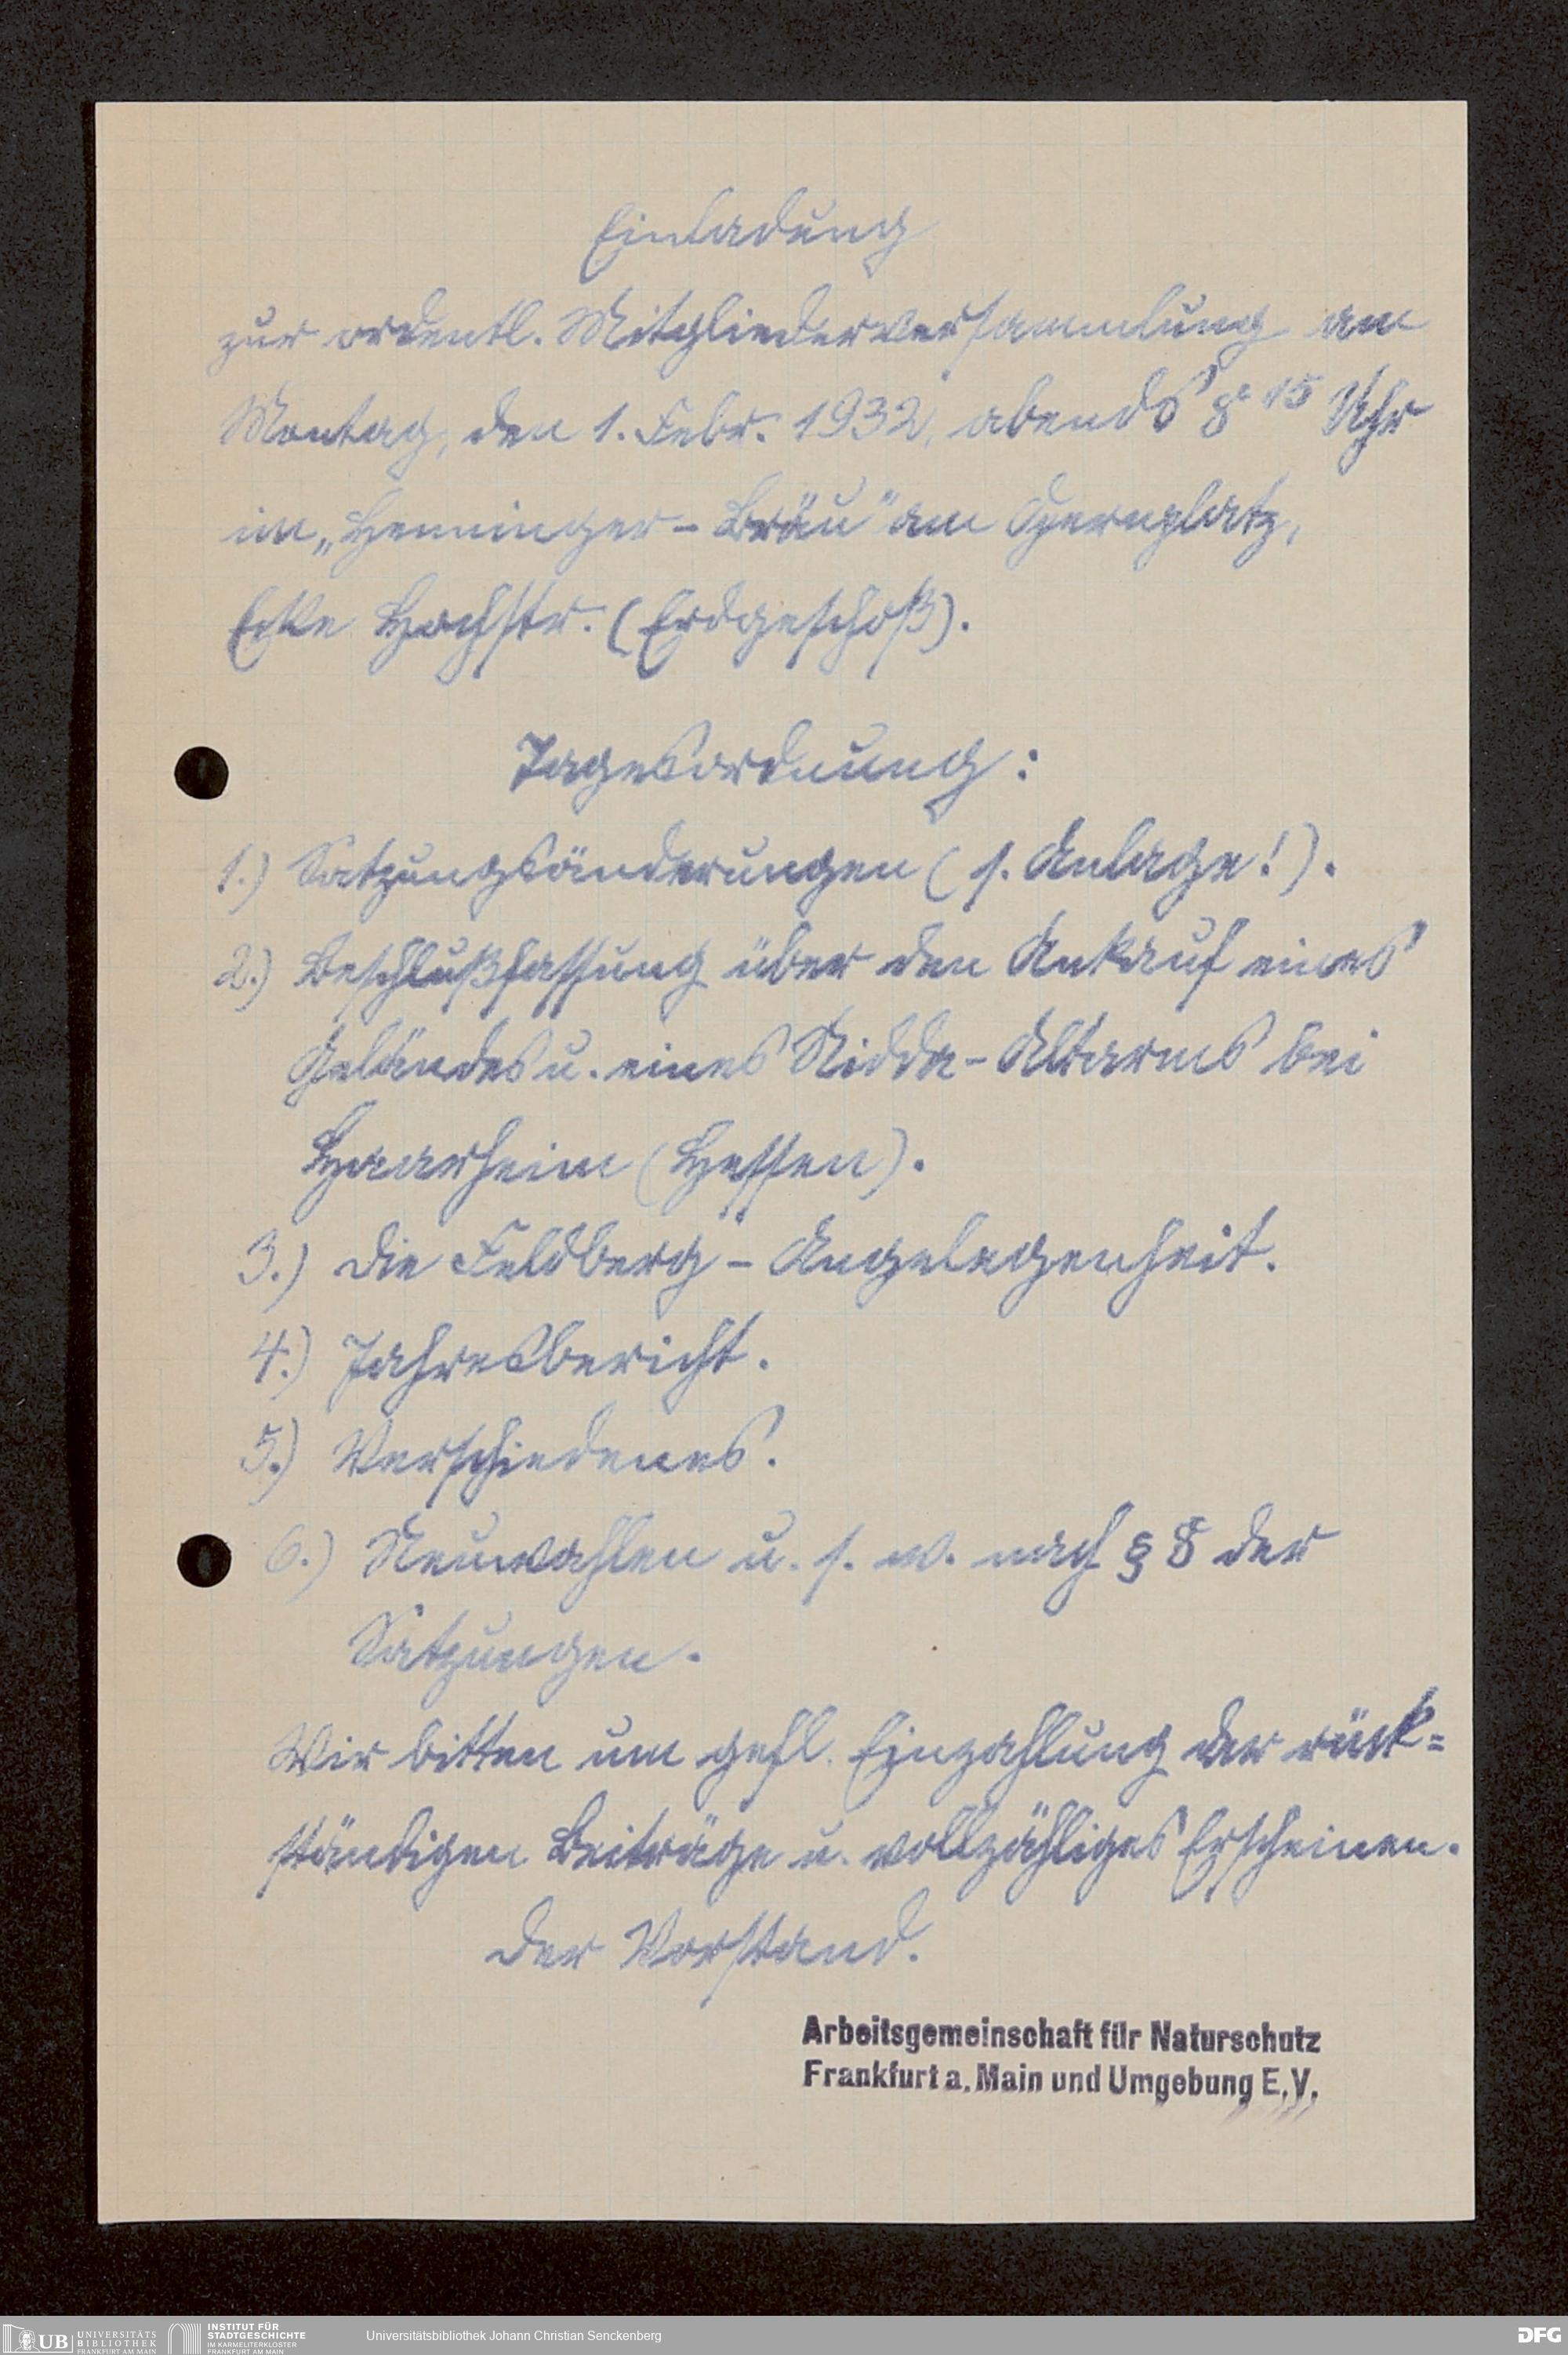 Einladung
zur ordentl. Mitgliederversammlung am
Montag, den 1. Febr. 1932, abends 8 15 Uhr
im „Henninger-Bräu“ am Opernplatz,
Ecke Hochstr. (Erdgeschoß).
Tagesordnung:
1.) Satzungsänderungen (s. Anlage!).
2.) Beschlußfassung über den Ankauf eines
Geländes u. eines Nidda-Altarms bei
Haarheim (Hessen).
3.) Die Feldberg-Angelegenheit.
4.) Jahresbericht.
5.) Verschiedenes.
6.) Neuwahlen u. s. w. nach § 8 der
Satzungen.
Wir bitten um gefl. Einzahlung der rück=
ständigen Beiträge u. vollzähliges Erscheinen.
Der Vorstand.
Arbeitsgemeinschaft für Naturschutz
Frankfurt a. Main und Umgebung E.V.
UB UNIVERSITÄTS
BIBLIOTHEK
FRANKFURT AM MAIN
INSTITUT FÜR
STADTGESCHICHTE
IM KARMELITERKLOSTER
FRANKFURT AM MAIN
Universitätsbibliothek Johann Christian Senckenberg
DFG